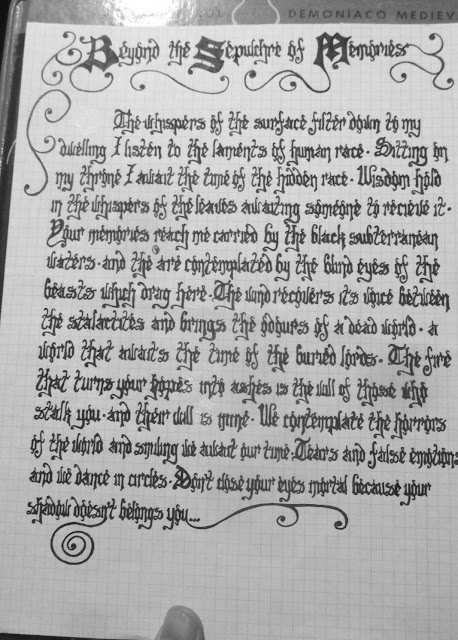 DEMONÍACO MEDIEV
Beyond the Sepulchre of Memories
The whispers of the surface filter down to my
dwelling I listen to the laments of human race. Sitting on
my throne I await the time of the hidden race. Wisdom hold
in the whispers of the leaves awaiting someone to recieve it.
Your memories reach me carried by the black subterranean
waters. and the are contemplated by the blind eyes of the
beasts which drag here. The wind recovers its voice between
the stalactites and brings the odours of a dead world. a
world that awaits the time of the buried lords. The fire
that turns your hopes into ashes is the will of those who
stalk you. and their will is mine. We contemplate the horrors
of the world and smiling we await our time. Tears and false emotions
and we dance in circles. Don't close your eyes mortal because your
shadow doesn't belongs you...